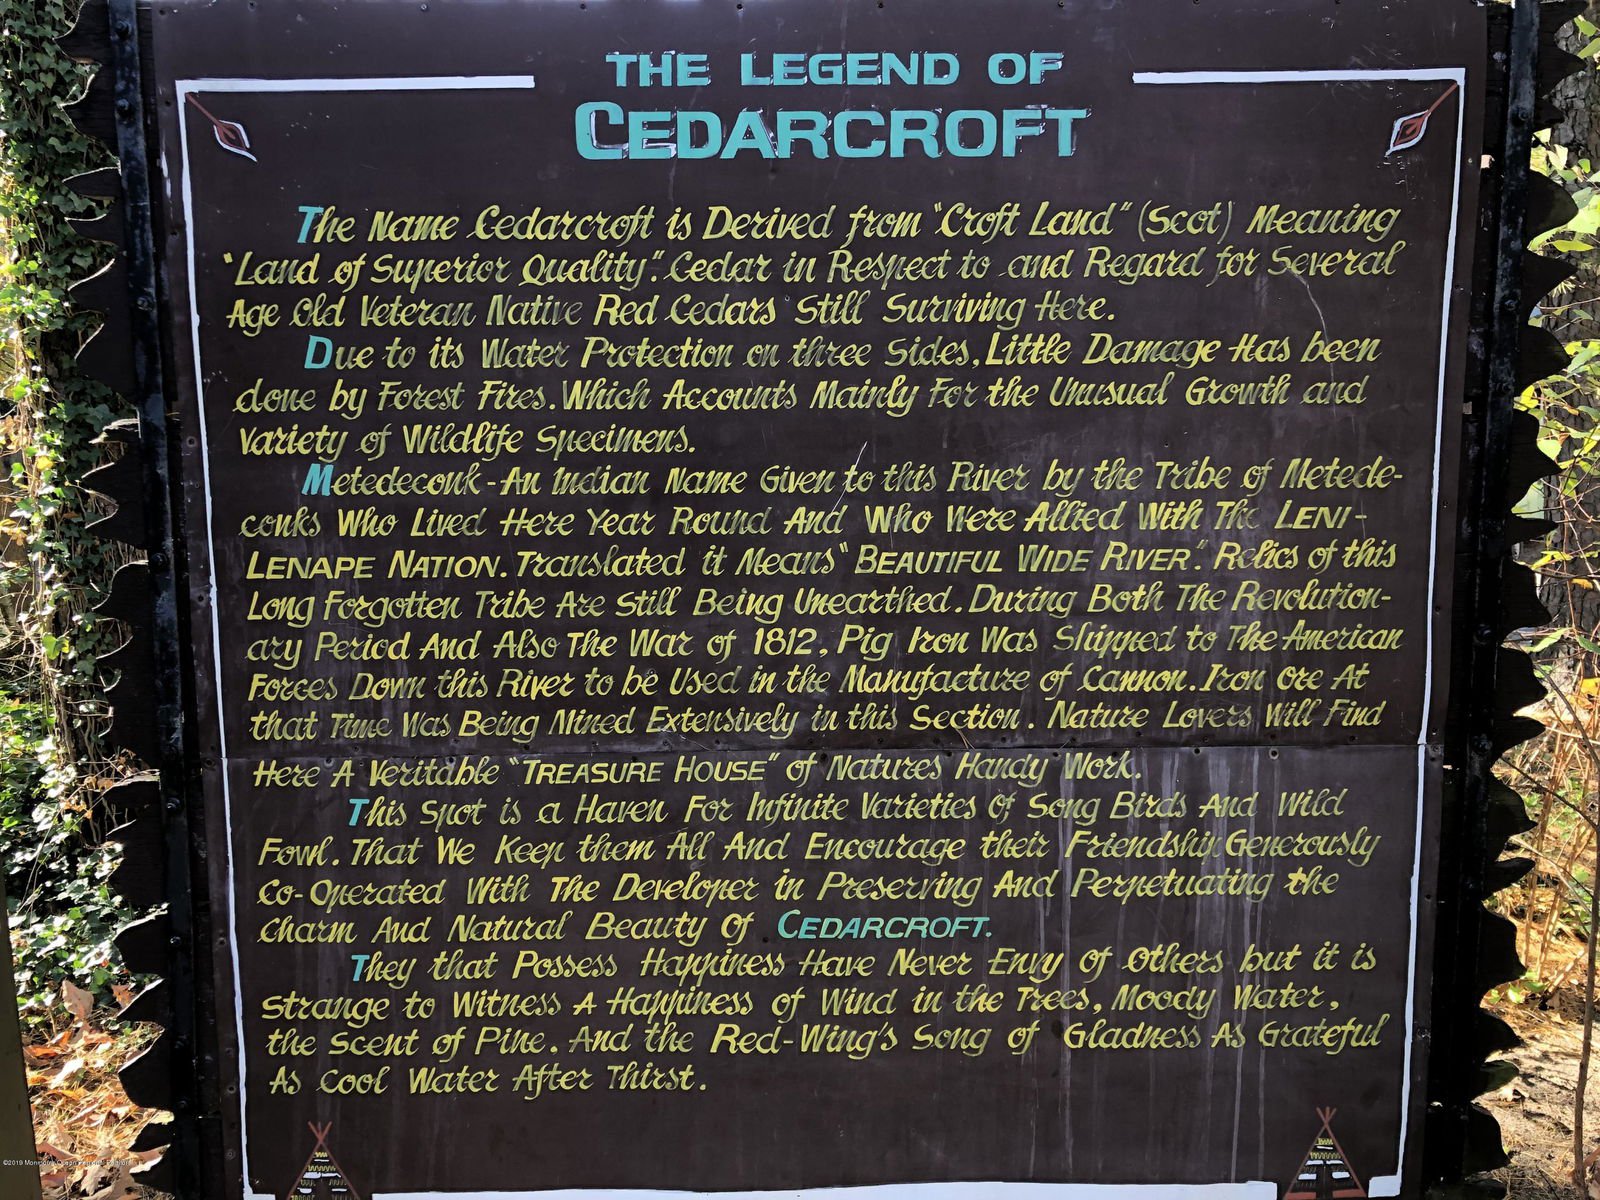 THE LEGEND OF
CEDARCROFT
The Name Cedarcroft is Derived from "Croft Land" (Scot) Meaning
"Land of Superior Quality". Cedar in Respect to and Regard for Several
Age Old Veteran Native Red Cedars Still Surviving Here.
Due to its Water Protection on three Sides, Little Damage Has been
done by Forest Fires. Which Accounts Mainly For the Unusual Growth and
Variety of Wildlife Specimens.
Metedeconk - An Indian Name Given to this River by the Tribe of Metede-
conks Who Lived Here Year Round And Who Were Allied With The LENI-
LENAPE NATION. Translated it Means "BEAUTIFUL WIDE RIVER". Relics of this
Long Forgotten Tribe Are Still Being Unearthed. During Both The Revolution-
ary Period And Also The War of 1812, Pig Iron Was Shipped to The American
Forces Down this River to be Used in the Manufacture of Cannon. Iron Ore At
that Time Was Being Mined Extensively in this Section. Nature Lovers Will Find
Here A Veritable "TREASURE HOUSE" of Natures Handy Work.
This Spot is a Haven For Infinite Varieties Of Song Birds And Wild
Fowl. That We Keep them All And Encourage their Friendship Generously
Co-Operated With The Developer in Preserving And Perpetuating the
Charm And Natural Beauty Of CEDARCROFT.
They that Possess Happiness Have Never Envy of Others but it is
Strange to Witness A Happiness of Wind in the Trees, Moody Water,
the Scent of Pine. And the Red-Wing's Song of Gladness As Grateful
As Cool Water After Thirst.
©2019 Monmouth Ocean Regional Realtors